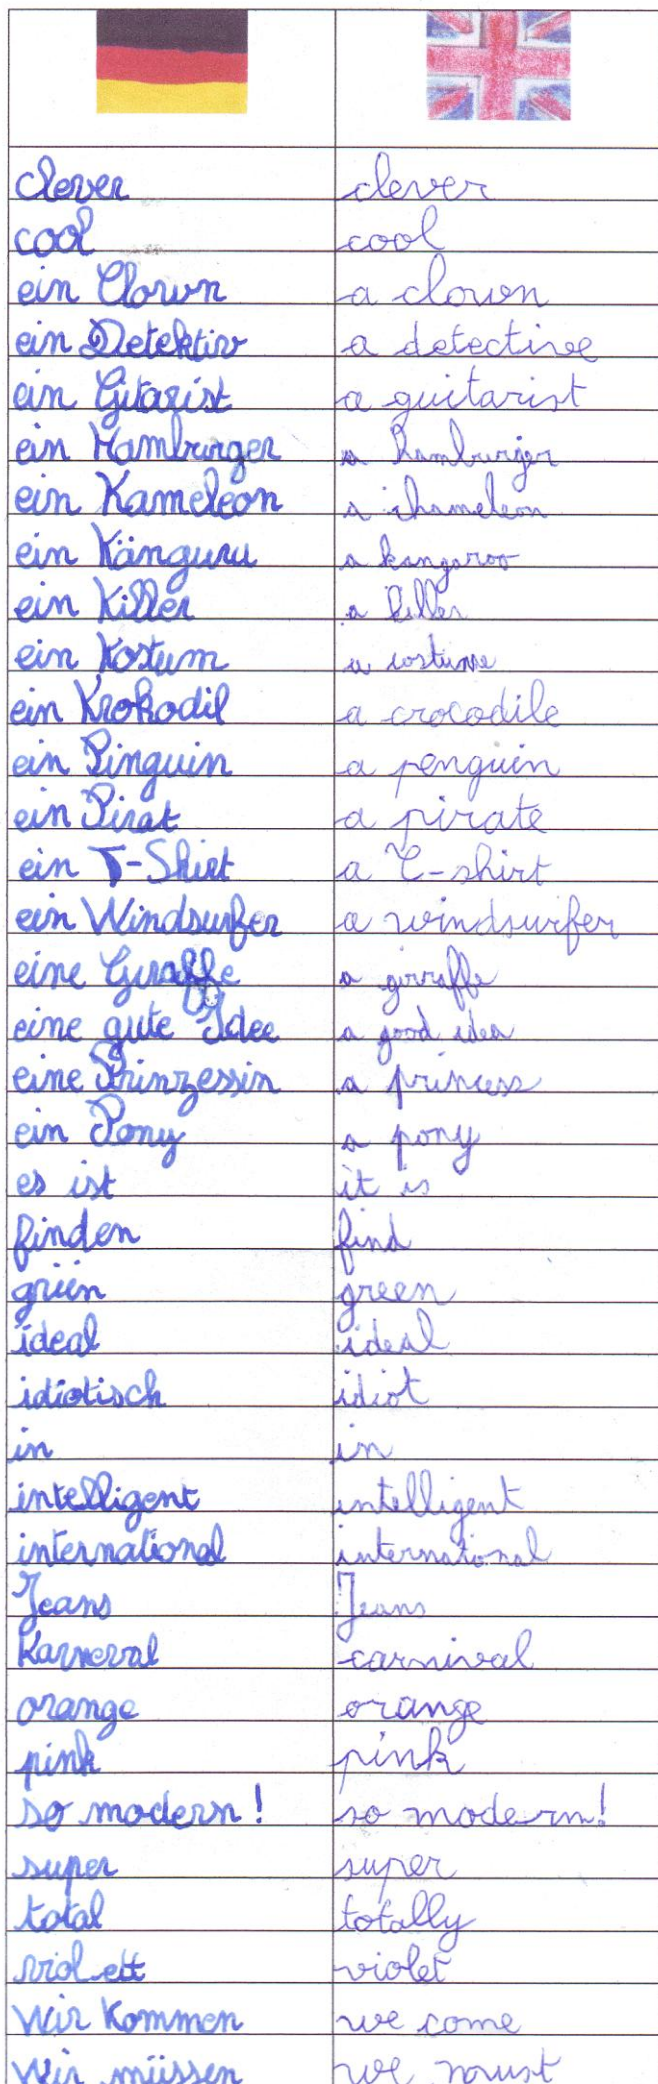 clever clever
cool cool
ein Clown a clown
ein Detektiv a detective
ein Gitarist a guitarist
ein Hamburger a hamburger
ein Kameleon a chameleon
ein Känguru a kangaroo
ein Killer a killer
ein Kostum a costume
ein Krokodil a crocodile
ein Pinguin a penguin
ein Pirat a pirate
ein T-Shirt a T-shirt
ein Windsurfer a windsurfer
eine Giraffe a girraffe
eine gute Idee a good idea
eine Prinzessin a princess
ein Pony a pony
es ist it is
finden find
grün green
ideal ideal
idiotisch idiot
in in
intelligent intelligent
international international
Jeans Jeans
Karneval carnival
orange orange
pink pink
so modern! so modern!
super super
total totally
violett violet
Wir Kommen we come
Wir müssen we must